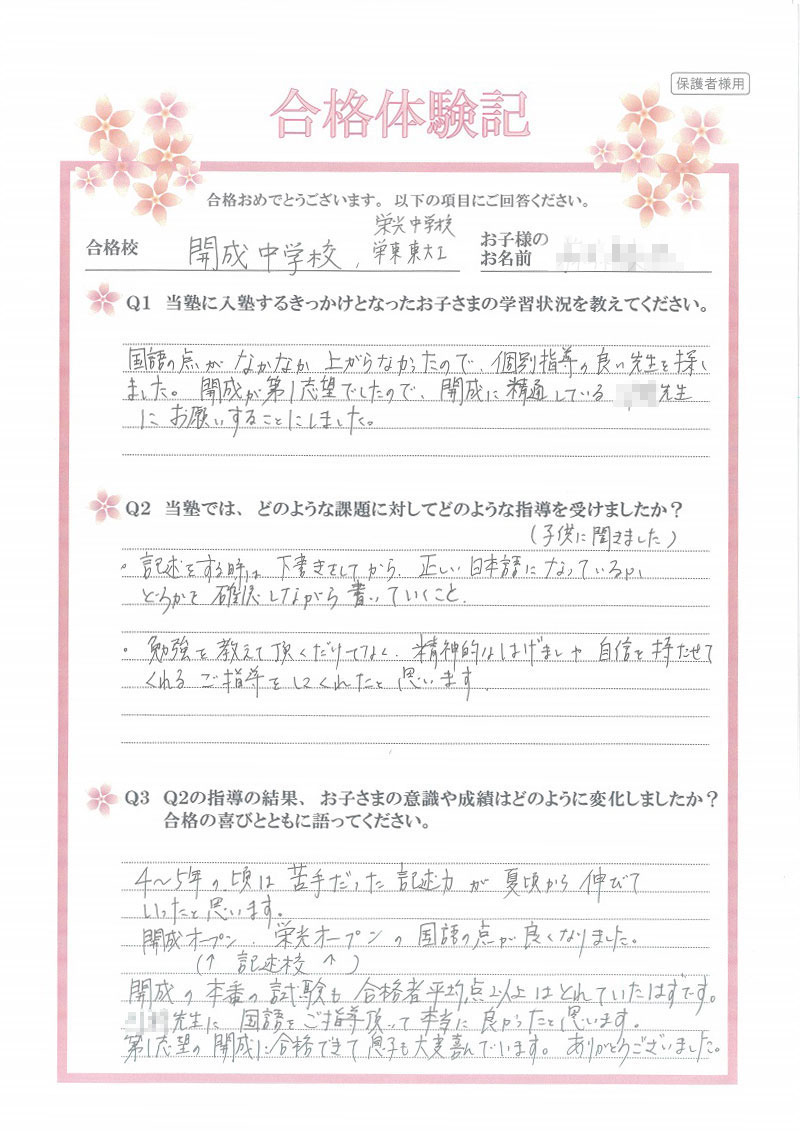 保護者様用
合格体験記
合格おめでとうございます。以下の項目にご回答ください。
合格校 開成中学校、栄光中学校
栄東東大Ⅰ
お子様の
お名前
Q1 当塾に入塾するきっかけとなったお子さまの学習状況を教えてください。
国語の点がなかなか上がらなかったので、個別指導の良い先生を探し
ました。開成が第1志望でしたので、開成に精通している 先生
にお願いすることにしました。
Q2 当塾では、どのような課題に対してどのような指導を受けましたか?
(子供に聞きました)
・記述をする時は下書きをしてから、正しい日本語になっているか
どうかを確認しながら書いていくこと。
・勉強を教えて頂くだけでなく、精神的なはげましや自信を持たせて
くれるご指導をしてくれたと思います。
Q3 Q2の指導の結果、お子さまの意識や成績はどのように変化しましたか?
合格の喜びとともに語ってください。
4〜5年の頃は苦手だった記述力が夏頃から伸びて
いったと思います。
開成オープン、栄光オープンの国語の点が良くなりました。
(↑記述校↑)
開成の本番の試験も合格者平均点以上はとれていたはずです。
先生に国語をご指導頂いて本当に良かったと思います。
第1志望の開成に合格できて息子も大変喜んでいます。ありがとうございました。